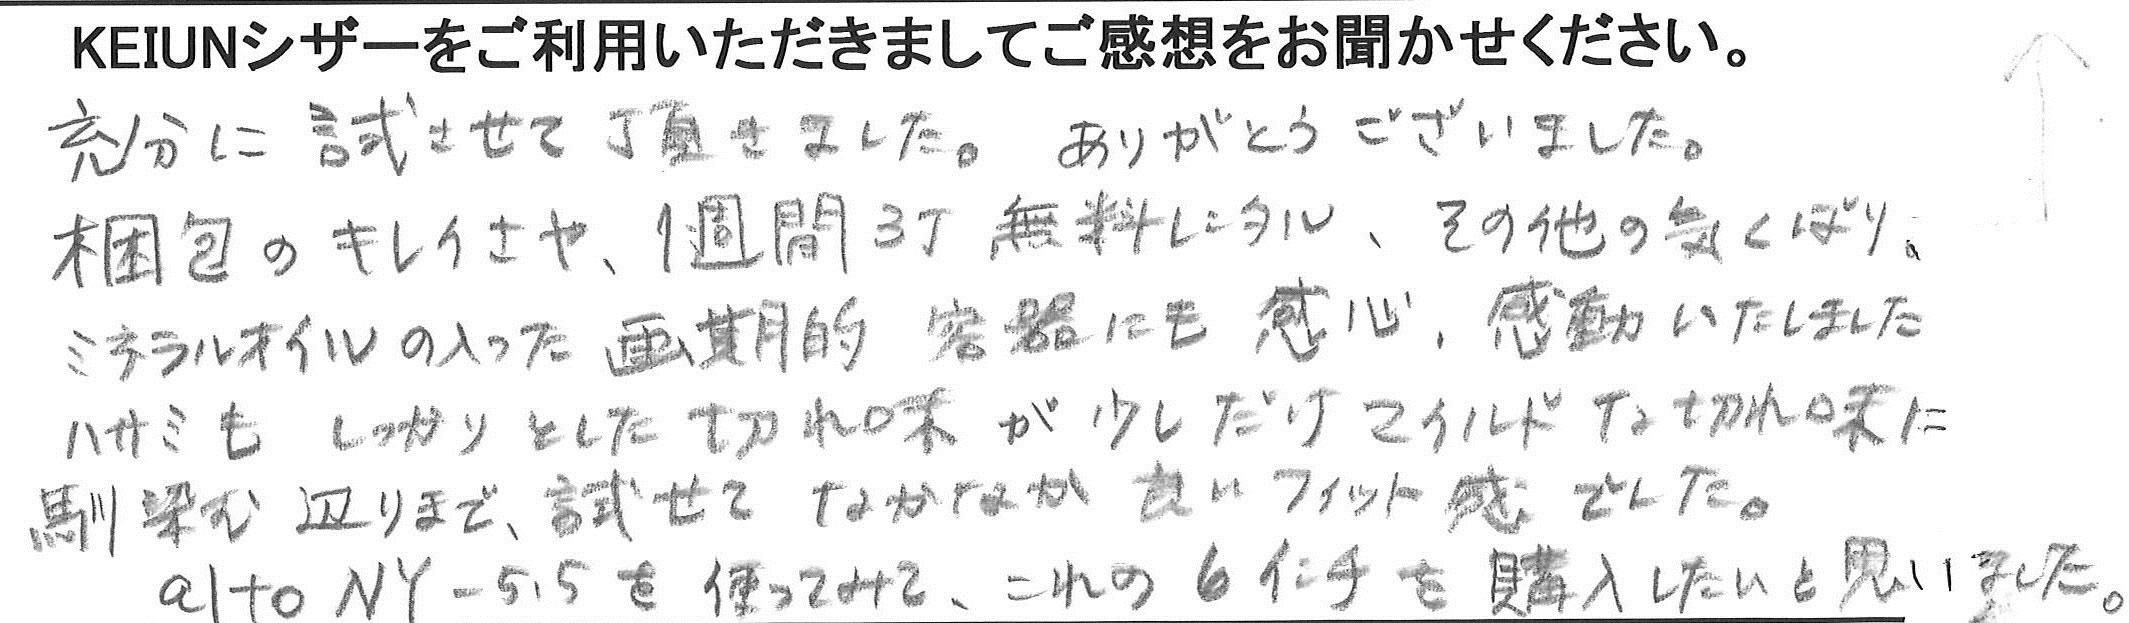 KEIUNシザーをご利用いただきましてご感想をお聞かせください。
充分に試させて頂きました。ありがとうございました。
梱包のキレイさや、1週間3丁無料レンタル、その他の気くばり、
ミネラルオイルの入った画期的容器にも感心、感動いたしました
ハサミもしっかりとした切れ味が少しだけマイルドな切れ味に
馴染む辺りまで、試せてなかなか良いフィット感でした。
alto NY-5.5を使ってみて、これの6インチを購入したいと思いました。